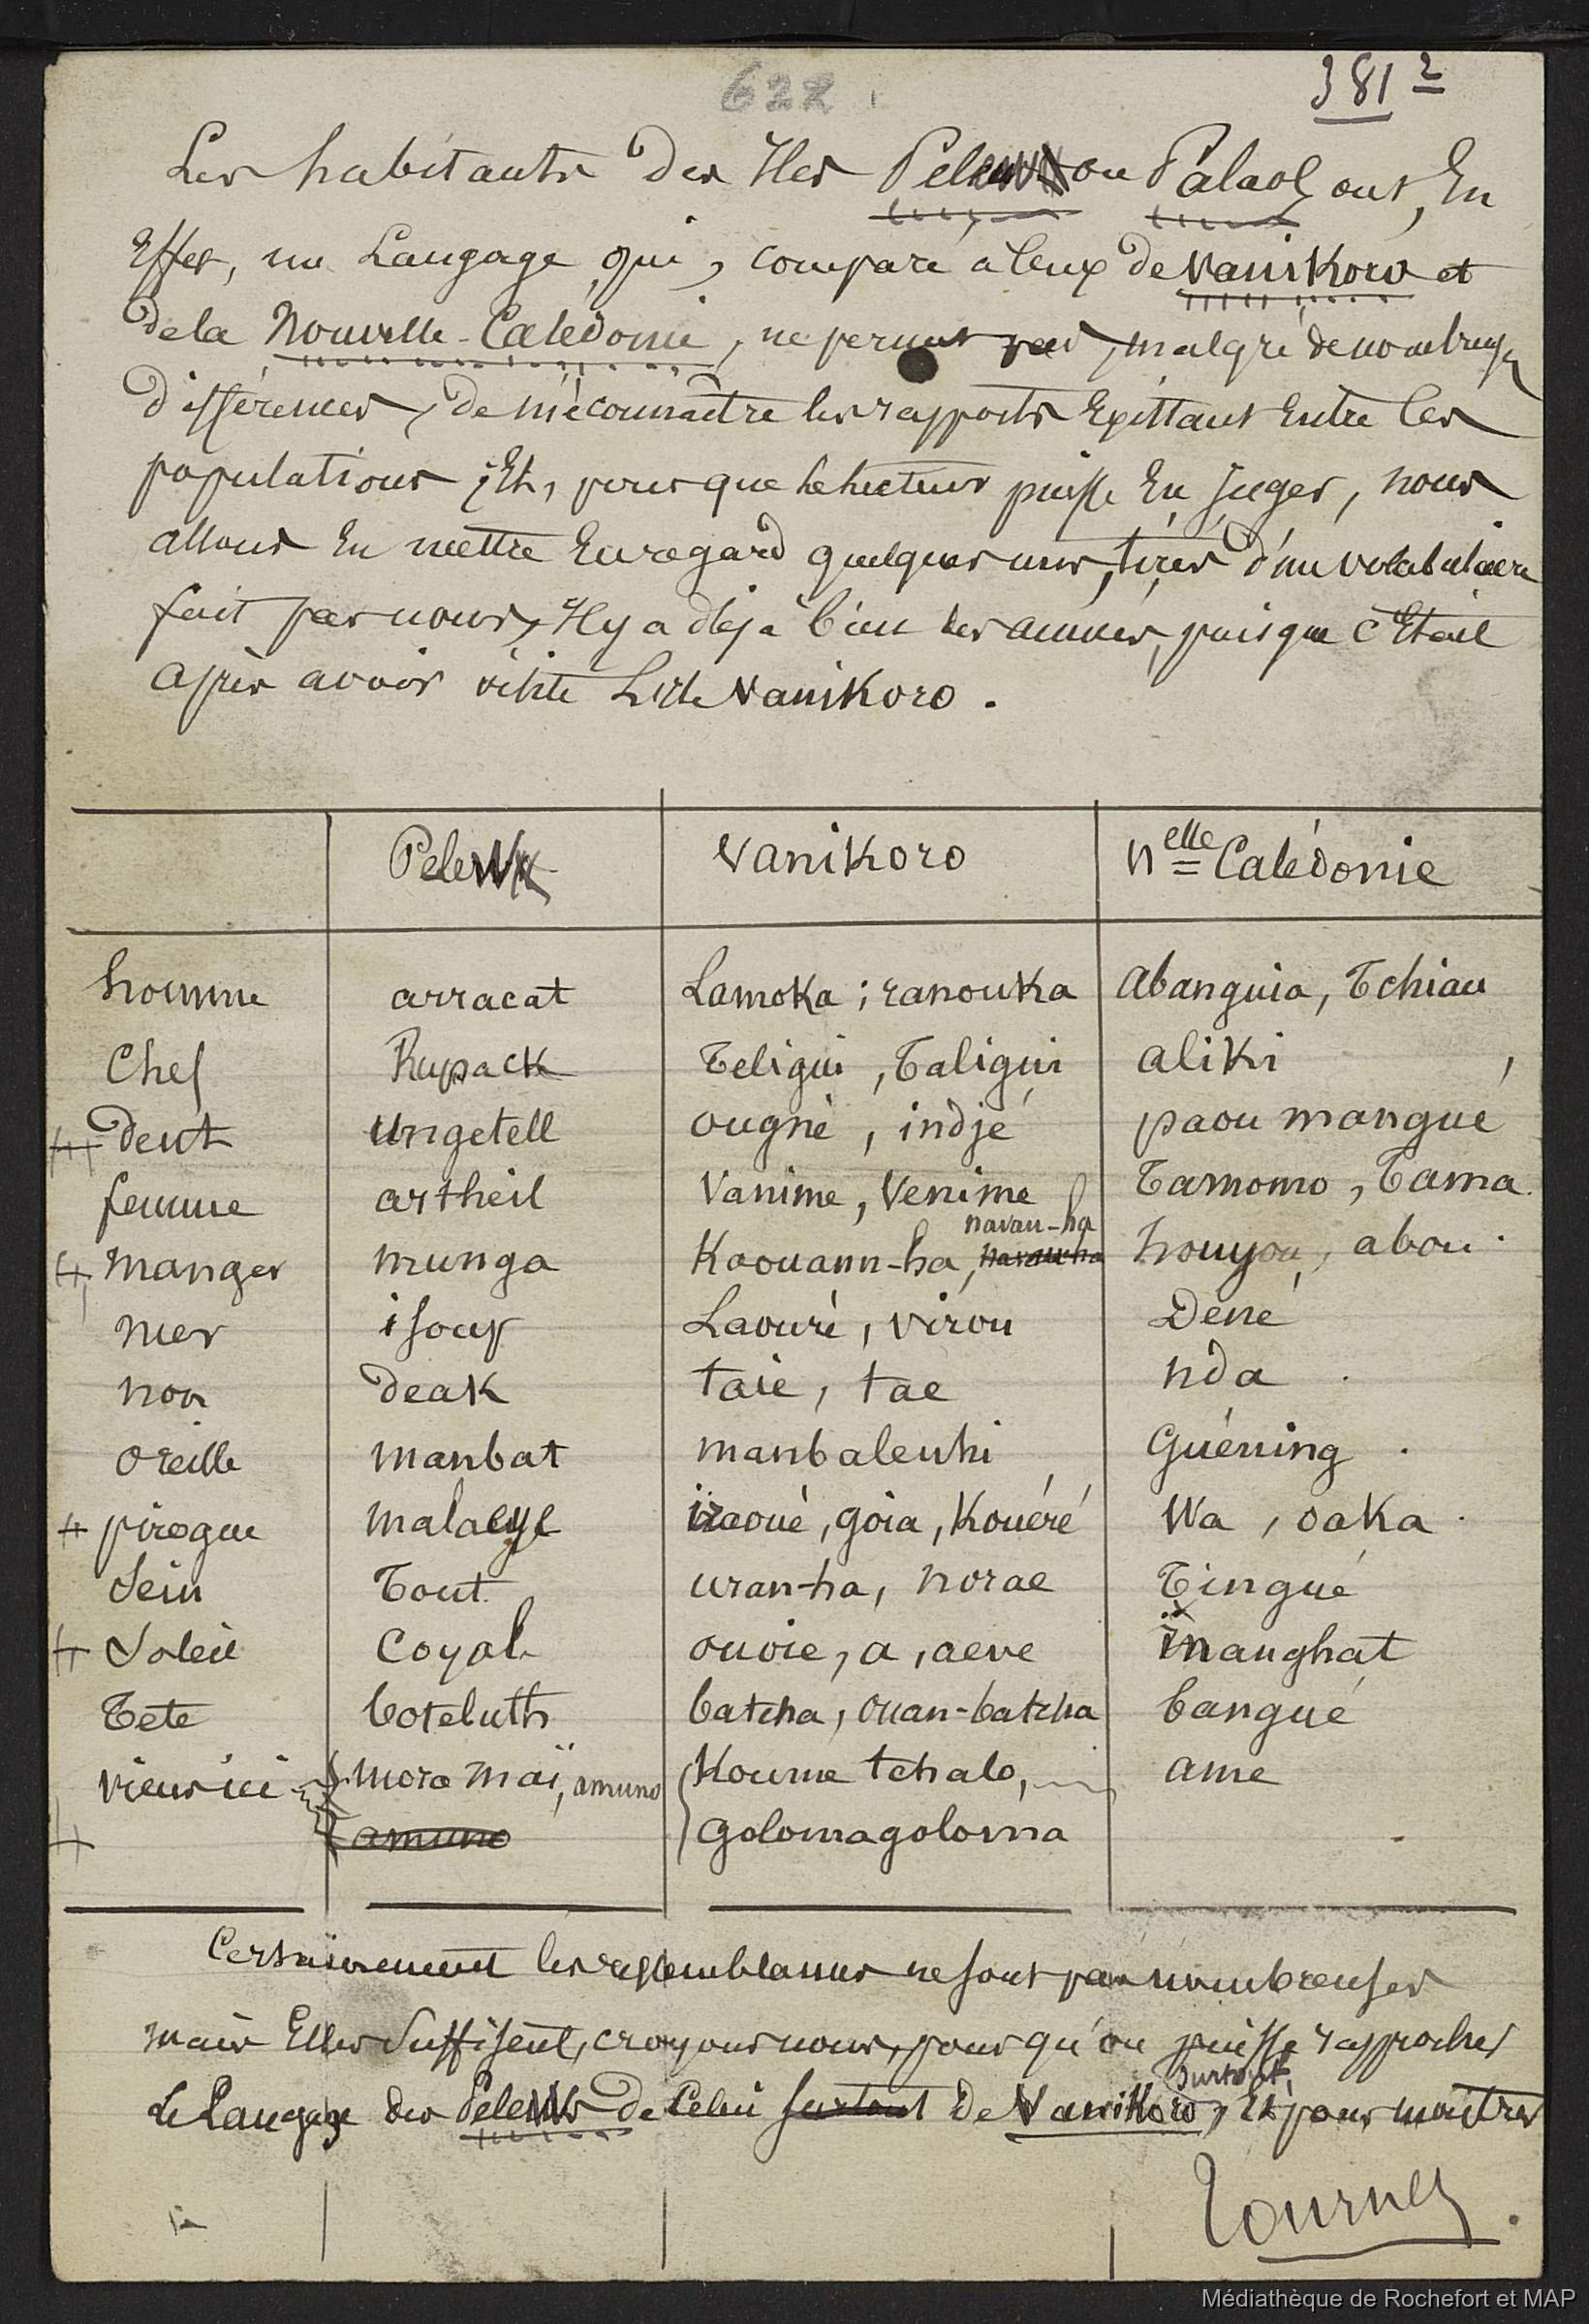 622
381 2
Les habitants des Iles Pelew ou Palaos ont, En
Effet, un Langage qui, comparé à ceux de Vanikoro et
de la Nouvelle-Calédonie, ne permet pas, malgré de nombreuses
différences, de méconnaître les rapports Existant Entre les
populations ; Et, pour que le lecteur puisse En juger, nous
allons En mettre En regard quelques uns, tirés d'un vocabulaire
fait par nous, Il y a déjà bien des années, puisque c'Etait
après avoir visité L'isle Vanikoro.
Pelew Vanikoro Nelle Calédonie
homme arracat Lamoka ; ranouka abanguia, Tchiau
Chef Rupack Teligui, Taligui aliki
dent ungetell ougné, indjé paou mangué
femme artheil Vanime, Venime Tamomo, Tama
manger munga Kaouann-ha, navan-ha houyou, abou
mer isoup Laouré, virou Déné
non deak taie, tae nda
oreille manbat manbalenhi Guéning
pirogue malaeye goia, Kouéré Wa, oaka
Sein Tout uran-ha, norae Tingué
Soleil Coyal ouoie, a, aeve inanghat
Tete boteluth batcha, ouan-batcha bangué
viens ici mora maï, amuno Koume tchalo, ame
amuno golomagoloma
Certainement les ressemblances ne sont pas nombreuses
mais Elles Suffisent, croyons nous, pour qu'on puisse rapprocher
le Langage des Pelews de Celui surtout de Vanikoro, surtout, Et pour montrer
Tournez
Médiathèque de Rochefort et MAP